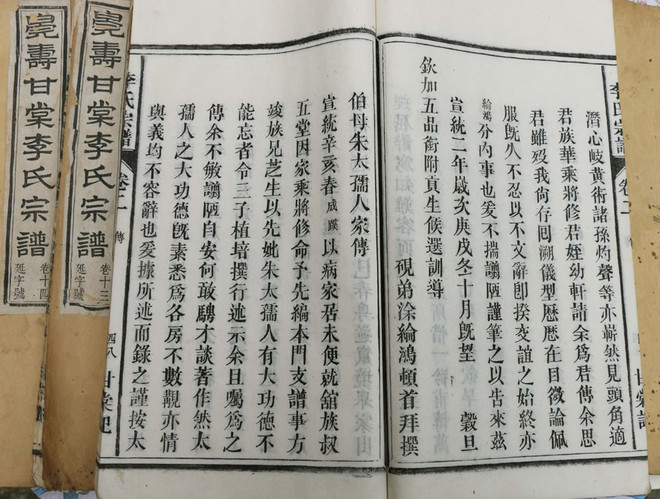 潛心岐黄術諸孫灼聲等亦嶄然見頭角適
君族華乘將修君姪幼軒請余為君傳余思
君雖殁我尚存囘溯儀型歷歷在目微論佩
服旣久不忍以不文辭卽揆交誼之始終亦
綸鴻分内事也爰不揣譾陋謹筆之以告來兹
宣統二年歲次庚戌冬十月旣望 穀旦
欽加五品銜附貢生候選訓導
硯弟涂綸鴻頓首拜撰
伯母朱太孺人家傳
宣統辛亥春成蹊以病家居未便就舘族叔
五堂因家乘將修命予先編本門支譜事方
竣族兄芝生以先妣朱太孺人有大功德不
能忘者令三子植培撰行述示余且囑爲之
傳余不敏譾陋自安何敢騁才談著作然太
孺人之大功德旣素悉爲各房不數覯亦情
與義均不容辭也爰據所述而錄之謹按太
李氏宗譜
卷二
傳
四八
甘棠記
李氏宗譜
卷二
甘棠記
甍壽甘棠李氏宗譜
卷十三
延字號
甍壽甘棠李氏宗譜
卷十四
延字號